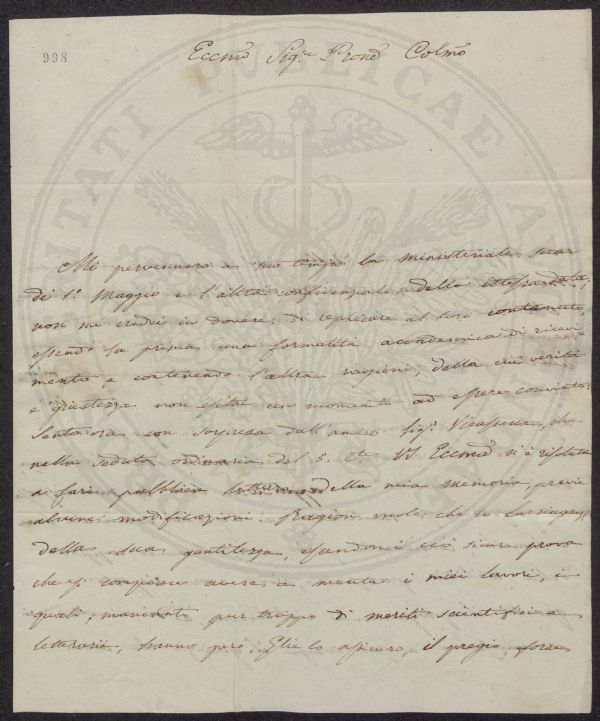 998
Eccmo Sigre Prone Colmo
Mi pervennero a suo tempo la ministeriale sua
di 1º Maggio e l'altra confidenziale della stessa data,
non mi credei in dovere di replicare al loro contenuto,
essendo la prima una formalità accademica di ricevi
mento, e contenendo l'altra ragioni, della cui verità
e giustezza non esitai un momento ad essere convinto.
Sento ora con sorpresa dall'amico Sigr che
nella seduta ordinaria del 5. VS Eccma si è
a fare pubblica della mia memoria, previe
alcune modificazioni. Ragion vuole che io La ringrazj
della sua gentilezza, essendomi ciò sicura prova
che si compiace avere a mente i miei lavori, i
quali, mancanti pur troppo di meriti scientifici e
letterarii, hanno però, Glie lo assicuro, il pregio forse